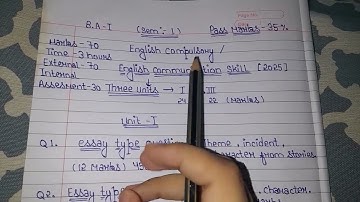 B.A-I (sem:-1) Pass Marks-35%
Marks-70 English Compulsory /
Time-3 hours
External-70 English Communication Skill [2025]
Internal
Assesment-30 Three units → I III
24 22 (Marks)
Unit-I
Q1. Essay type theme, incident,
(12 Marks) character from stories
Q2. Essay character,